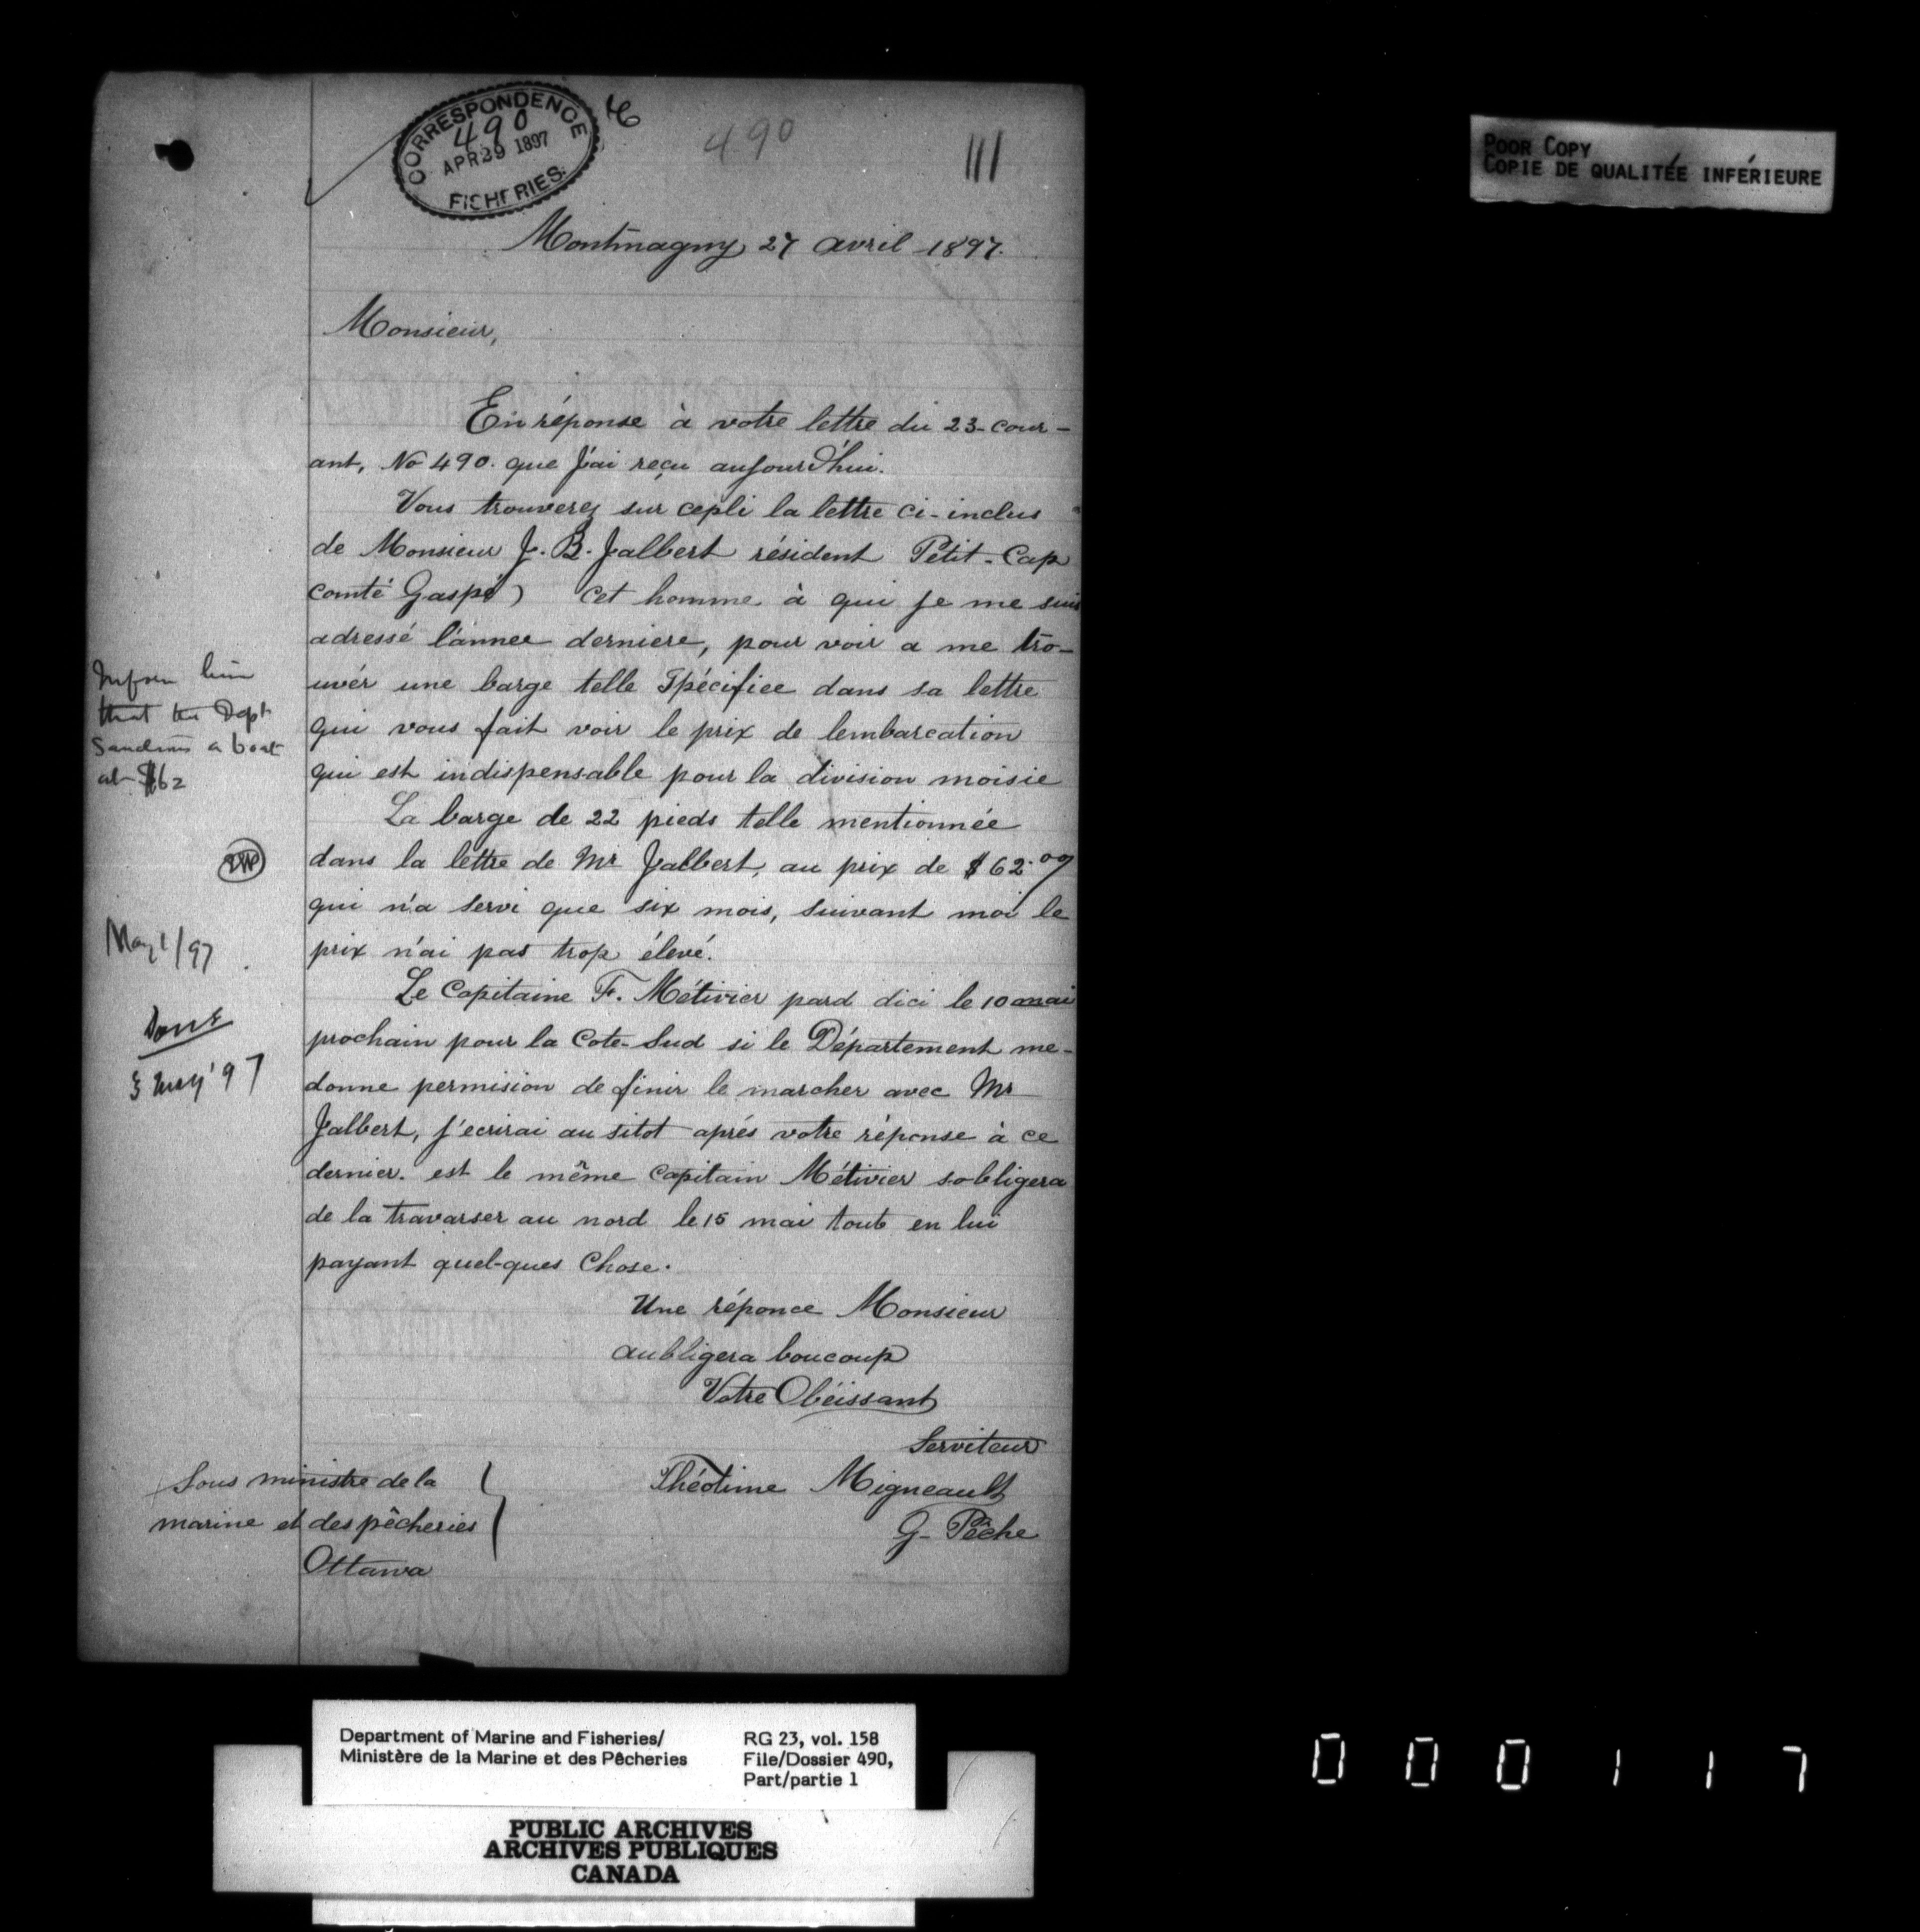 CORRESPONDENCE
490
APR 29 1897
FISHERIES.
490
111
POOR COPY
COPIE DE QUALITÉE INFÉRIEURE
Montmagny 27 avril 1897.
Monsieur,
En réponse à votre lettre du 23-cour-
ant, No 490. que j'ai reçu aujourd'hui.
Vous trouverez sur cepli la lettre ci-inclus
de Monsieur J. B. Jalbert résident Petit-Cap
comté Gaspé) cet homme à qui je me suis
adressé l'annee derniere, pour voir a me tro-
uvér une barge telle spécifiee dans sa lettre
qui vous fait voir le prix de lembarcation
qui est indispensable pour la division moisie
La barge de 22 pieds telle mentionnée
dans la lettre de Mr Jalbert, au prix de $62.00
qui n'a servi que six mois, suivant moi le
prix n'ai pas trop élevé.
Le Capitaine F. Métivier pard dici le 10 mai
prochain pour la Cote-Sud si le Département me-
donne permision de finir le marcher avec Mr
Jalbert, j'ecrirai au sitot aprés votre réponse à ce
dernier. est le même Capitain Métivier sobligera
de la travarser au nord le 15 mai tout en lui
payant quel-ques Chose.
Une réponce Monsieur
aubligera boucoup
Votre Obéissant
Serviteur
Théotime Migneault
G- Pêche
Sous ministre de la
marine et des pêcheries
Ottawa
Inform him
that the Dept
Sanctions a boat
at $62
May 1/97
Done
3 May '97
Department of Marine and Fisheries/
Ministère de la Marine et des Pêcheries
RG 23, vol. 158
File/Dossier 490,
Part/partie 1
PUBLIC ARCHIVES
ARCHIVES PUBLIQUES
CANADA
000117